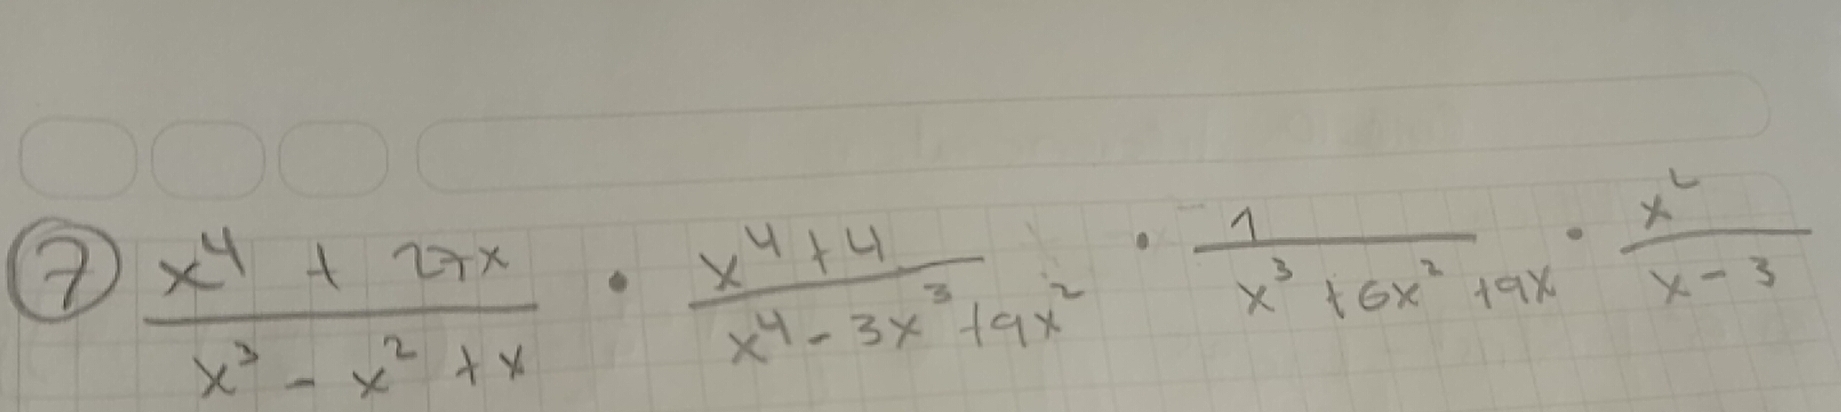 ⑦ \frac{x^4 + 27x}{x^3 - x^2 + x} \cdot \frac{x^4 + 4}{x^4 - 3x^3 + 9x^2} \cdot \frac{1}{x^3 + 6x^2 + 9x} \cdot \frac{x^2}{x - 3}